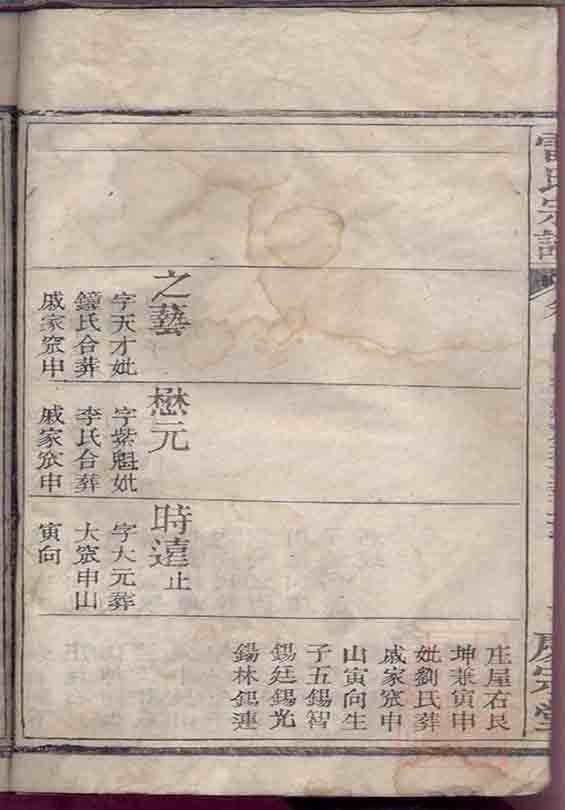 之藝
字天才妣
氏合葬
戚家窊申
懋元
字紫魁妣
李氏合葬
戚家窊申
時遠止
字大元葬
大窊申山
寅向
庄屋右艮
坤兼寅申
妣劉氏葬
戚家窊申
山寅向生
子五錫智
錫廷錫光
錫林錫連